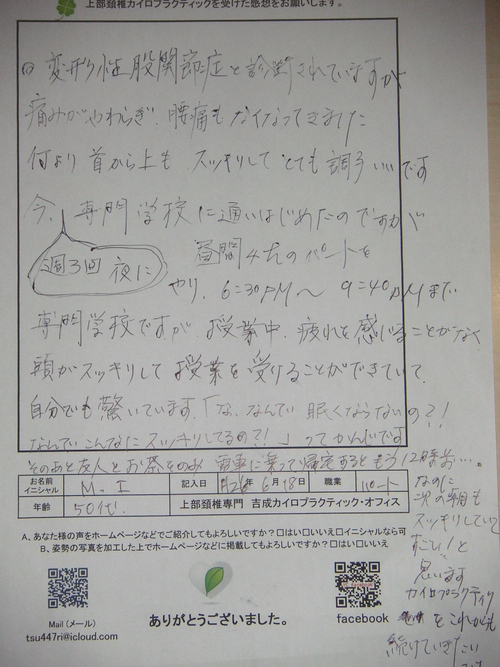 上部頚椎カイロプラクティックを受けた感想をお願いします。
変形性股関節症と診断されていますが
痛みがやわらぎ、腰痛もなくなってきました
何より首から上も スッキリして とても調子いいです
今、専門学校に通いはじめたのですが
週3回 夜に
昼間 のパートを
やり、6:30PM〜9:40PMまで
専門学校ですが 授業中、疲れを感じることがなく
頭がスッキリして 授業を受けることができていて、
自分でも驚いています、「な、なんで 眠くならないの?!
なんでこんなに スッキリしてるの?!」ってかんじです
そのあと友人とお茶をのみ 電車に乗って帰宅するともう12時
お名前 イニシャル M. I 記入日 H26年 6月18日 職業 パート
年齢 50代 上部頚椎専門 吉成カイロプラクティック・オフィス
なのに
次の朝も
スッキリしていて
すごい!と
思います
カイロプラクティック
をこれからも
続けていきたい
A、あなた様の声をホームページなどでご紹介してもよろしいですか?□はい□いいえ□イニシャルなら可
B、姿勢の写真を加工した上でホームページなどに掲載してもよろしいですか?□はい□いいえ
Mail(メール)
tsu447ri@icloud.com
ありがとうございました。
facebook